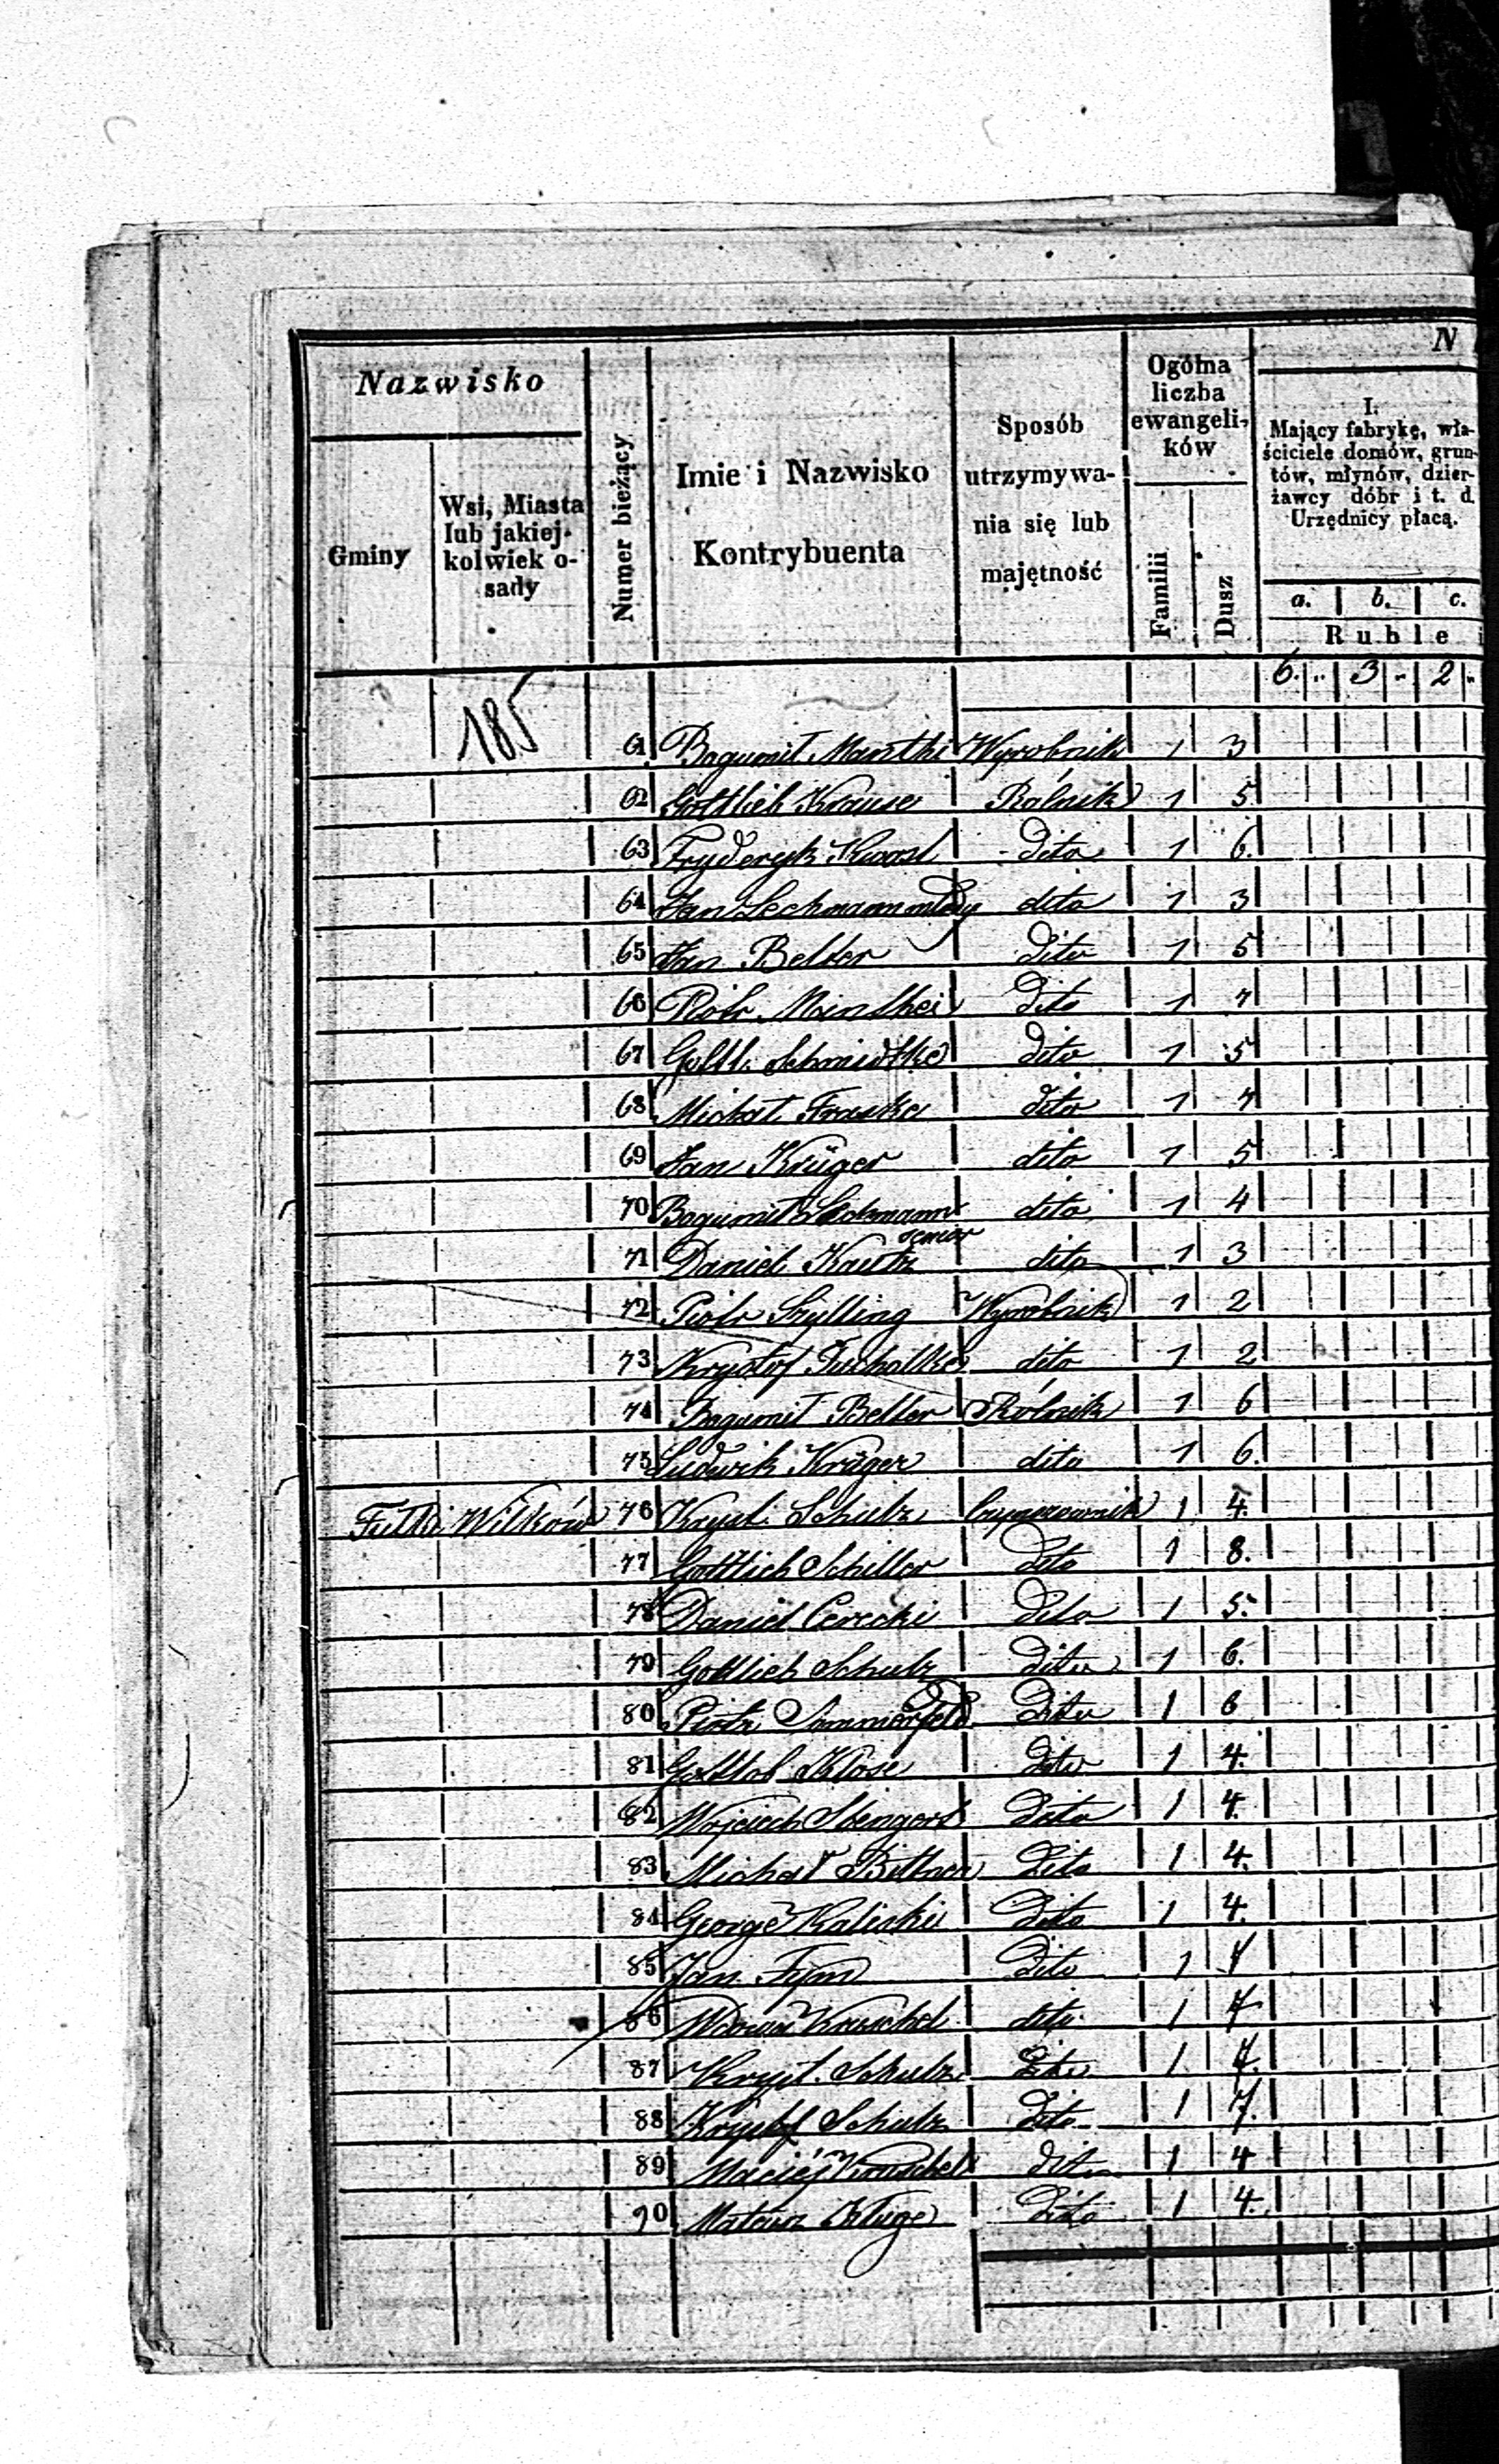 N
Nazwisko
Gminy
Wsi, Miasta lub jakiej-kolwiek o-sady
Numer bieżący
Imie i Nazwisko Kontrybuenta
Sposób utrzymywa-nia się lub majętność
Ogólna liczba ewangeli-ków
Familii
Dusz
I.
Mający fabrykę, wła-
ściciele domów, grun-
tów, młynów, dzier-
żawcy dóbr i t. d.
Urzędnicy płacą.
a. b. c.
Ruble i
6. " 3 " 2 "
185
61 Bogumił Manthei Wyrobnik 1 3
62 Gottlieb Krause Rólnik 1 5
63 Fryderyk 1 6.
dito
64 Jan Leckmann młody dito 1 3
65 Jan Belter dito 1 5
66 Piotr Manthei dito 1 7
67 Gottl. Schmidtke dito 1 5
68 Michał Fraske dito 1 7
69 Jan Krüger dito 1 5
70 Bogumił Leckmann dito 1 4
senior
71 Daniel Kautz dito 1 3
72 Piotr Szylling Wyrobnik 1 2
73 Krysztof dito 1 2
74 Bogumił Belter Rólnik 1 6
75 Ludwik Krüger dito 1 6.
Wilków 76 Kryst. Schulz Czynszownik 1 4.
77 Gottlieb Schiller dito 1 8.
78 Daniel Cerecki dito 1 5.
79 Gottlieb Schulz dito 1 6.
80 Piotr Sommerfeld dito 1 6
81 Gottlob Klose dito 1 4.
82 Wojciech Stengert dito 1 4.
83 Michał Bittner dito 1 4.
84 George Kaliski dito 1 4.
85 Jan Tym dito 1
86 dito 1 7
87 Kryst. Schulz dito 1
88 Krysztof Schulz dito 1 7.
89 Maciéj Kruschel dito 1 4
90 Mateusz Kluge dito 1 4.